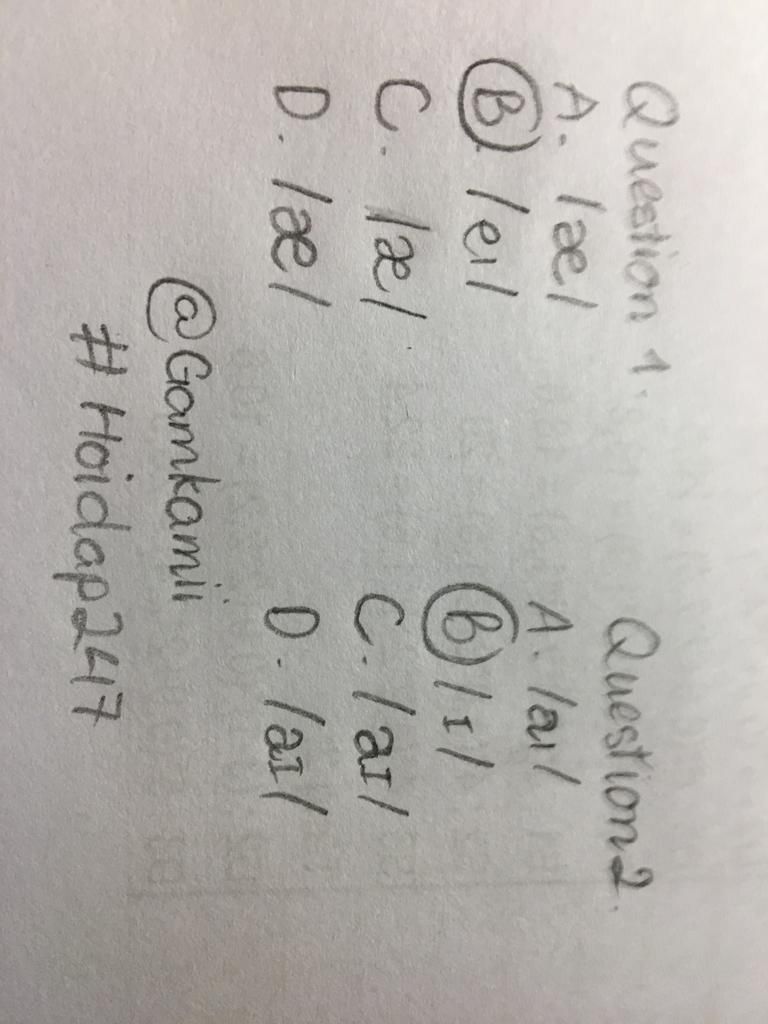 Question 1.
A. /æ/
B /eɪ/
C. /æ/
D. /æ/
Question 2.
A. /aɪ/
B /ɪ/
C. /aɪ/
D. /aɪ/
@Gamkamii
#Hoidap247